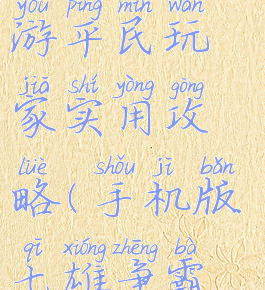 yóu píng mín wán
游平民玩
jiā shí yòng gōng
家实用攻
lüè shǒu jī bǎn
略(手机版
qī xióng zhēng bà
七雄争霸